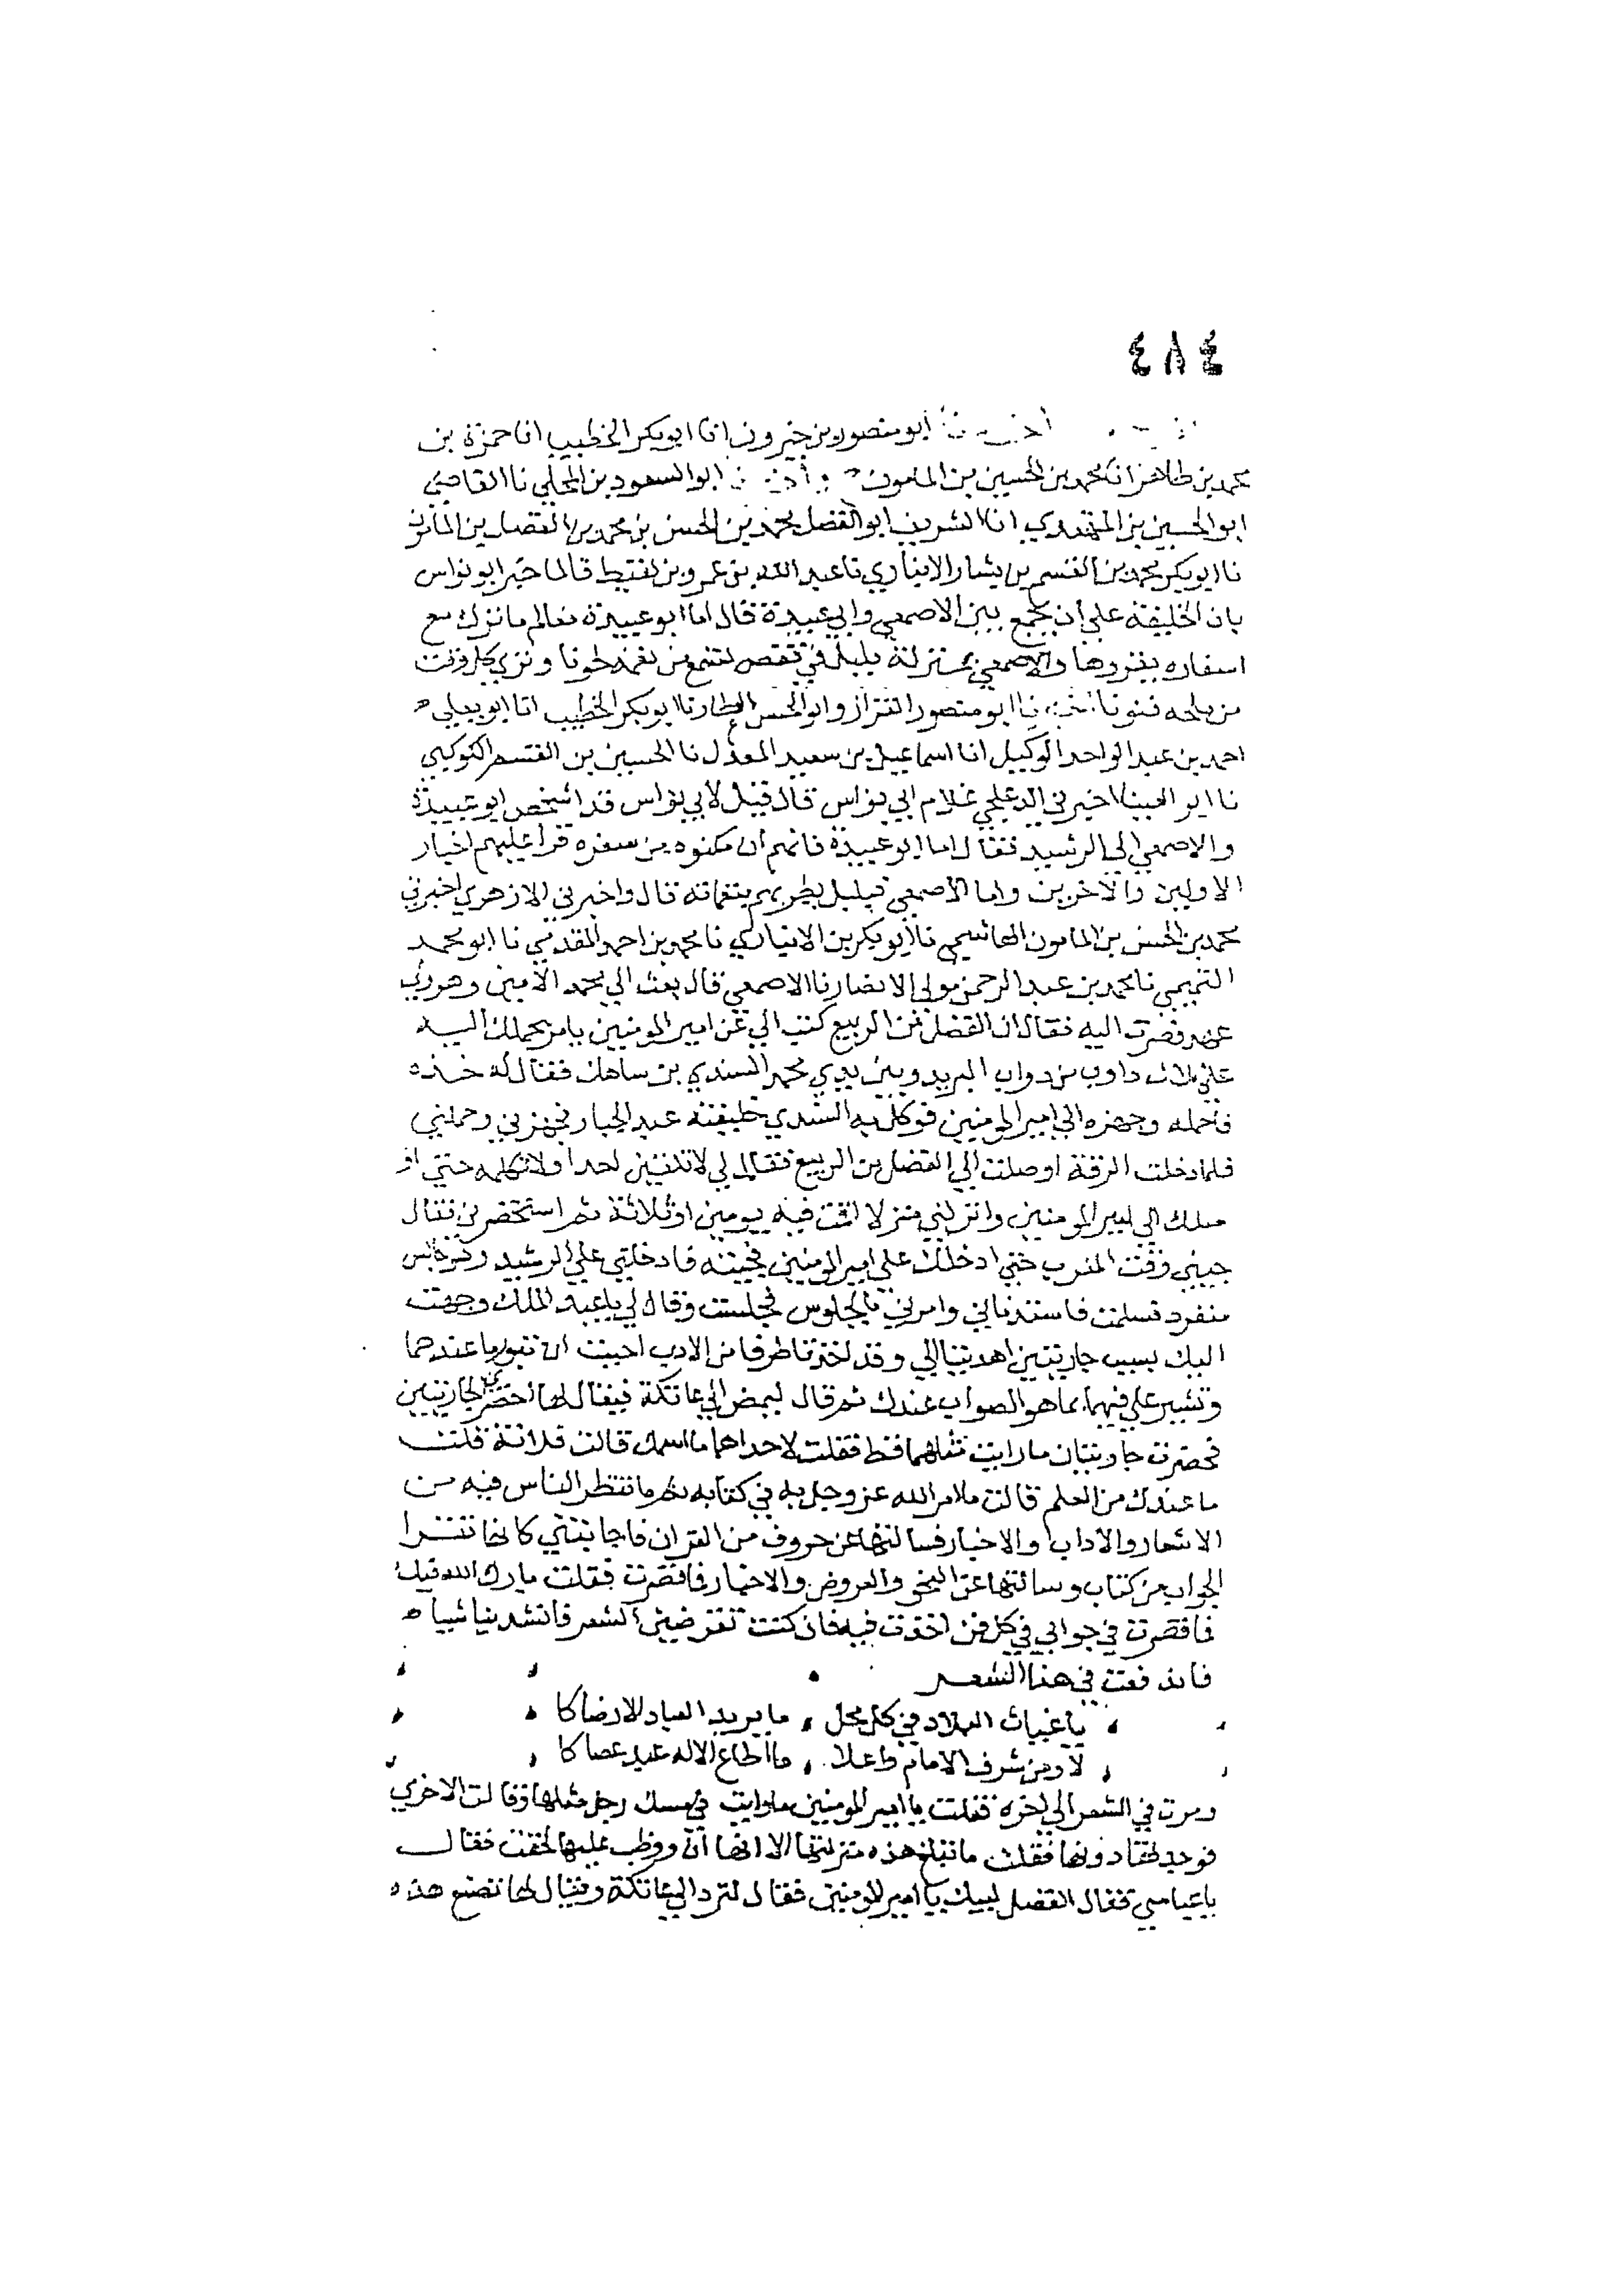 ٤٨٤
أخبرنا ابو منصور بن خيرون انا ابو بكر الخطيب انا حمزة بن
محمد بن طاهر انا محمد بن الحسين بن المامون ابو السعود بن المجلي نا القاضي
ابو الحسين بن المهتدي انا الشريف ابو الفضل محمد بن الحسن بن محمد بن الفضل بن المامون
نا ابو بكر محمد بن القسم بن بشار الانباري نا عبد الله بن عمرو بن لقيط قال لما خبر ابو نواس
بان الخليفة على أن يجمع بين الاصمعي وابي عبيدة قال اما ابو عبيدة فعالم ما نزك مع
اسفاره يقروها والاصمعي بمنزلة بلبل في قفص نسمع من نغمه لحونا ونرى كل وقت
من ملحه فنونا ابو منصور القزاز وابو الحسن العطار نا ابو بكر الخطيب انا ابو يعلي ه
احمد بن عبد الواحد الوكيل انا اسماعيل بن سعيد المعدل نا الحسين بن القسم الكوكبي
نا ابو العينا اخبرني الدعلجي غلام ابي نواس قال قيل لأبي نواس قد اشخص ابو عبيدة
والاصمعي الى الرشيد فقال اما ابو عبيدة فانهم ان مكنوه من سفره قرا عليهم اخبار
الاولين والاخرين واما الأصمعي فبلبل يطربهم بنغماته قال واخبرني الازهري اخبرني
محمد بن الحسن بن المامون الهاشمي نا ابو بكر بن الانباري نا محمد بن احمد المقدمي نا ابو محمد
التميمي نا محمد بن عبد الرحمن مولي الانصار نا الاصمعي قال بعث الي محمد الأمين وهو ولي
عهد فصرت اليه فقال ان الفضل بن الربيع كتب الي عن امير المومنين يامر بحملك اليه
علي ثلاث دواب من دواب البريد وبين يدي محمد السندي بن ساهك فقال له خذه
فاحمله وجهزه الى امير المومنين فوكل به السندي خليفته عبد الجبار فجهزني وحملني
فلما دخلت الرقة اوصلت الي الفضل بن الربيع فقال لي لا تلقين احدا ولا تكلمه حتى او
صلك الي امير المومنين وانزلني منزلا اقمت فيه يومين او ثلاثة ثم استحضرني فقال
جيني وقت المغرب حتى ادخلك علي امير المومنين فجيته فادخلني علي الرشيد وهو جالس
منفرد فسلمت فاستدناني وامرني بالجلوس فجلست وقال لي يا عبد الملك وجهت
اليك بسبب جاريتين اهديتا الي وقد اخذتا طرفا من الادب احببت ان تبور ما عندهما
وتشير علي فيهما بما هو الصواب عندك ثم قال ليمض الي عاتكة فيقال لها احضري الجاريتين
فحضرت جاريتان ما رايت مثلهما قط فقلت لاحداهما ما اسمك قالت فلانة قلت
ما عندك من العلم قالت ما امر الله عز وجل به في كتابه ثم ما تنظر الناس فيه من
الاشعار والاداب والاخبار فسالتها عن حروف من القران فاجابتني كانها تقرا
الجواب من كتاب وسالتها عن النحو والعروض والاخبار فما قصرت فقلت بارك الله فيك
فما قصرت في جوابي في كل فن اخذت فيه فان كنت تقرضين الشعر فانشدينا شيا ه
فاندفعت في هذا الشعر
يا غياث البلاد في كل محل ، ما يريد العباد الا رضاكا
لا ومن شرف الامام واعلا ، ما اطاع الاله عبد عصاكا
ومرت في الشعر الى اخره فقلت يا امير المومنين ما رايت في مسك رجل مثلها وقالت الاخري
فوجدتها دونها فقلت ما تبلغ هذه منزلتها الا انها ان ووظب عليها لحقت فقال
يا عباسي فقال الفضل لبيك يا امير المومنين فقال لترد الي عاتكة ويقال لها تصنع هذه